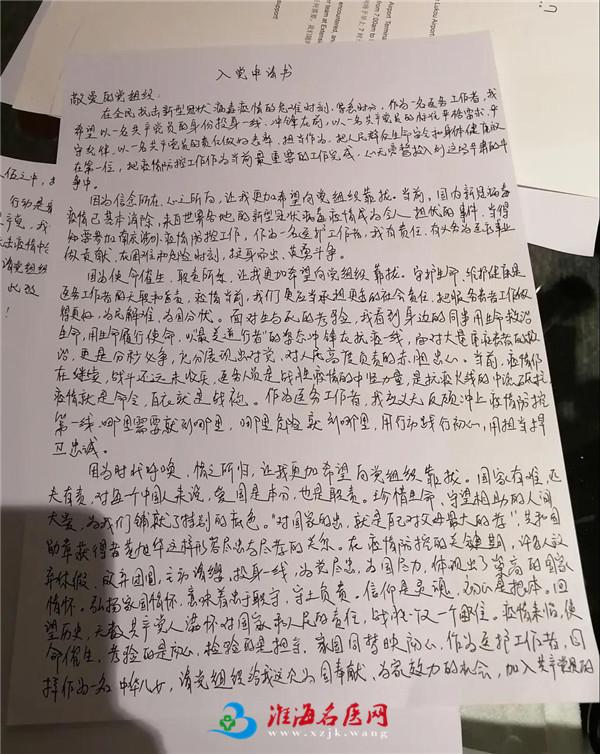 入党申请书
敬爱的党组织:
在全民抗击新型冠状病毒疫情的危难时刻、紧急时分,作为一名医务工作者,我
希望以一名共产党员的身份投身一线,冲锋在前,以一名共产党员的标准严格需求,严
守纪律,以一名共产党员的责任做好表率,担当作为,把人民群众生命安全和身体健康放
在第一位,把疫情防控工作作为当前最重要的工作完成,心无旁骛投入到这场斗争的斗
争中。
因为信念所在,心之所向,让我更加希望向党组织靠拢。当前,国内新冠病毒
疫情已基本消除,来自世界各地的新型冠状病毒疫情成为令人担忧的事件,当得
知要参加疫情防控工作,作为一名医护工作者,我有责任、有义务为医务事业
做贡献,在困难和危险时刻,挺身而出,英勇斗争。
因为使命催生,职责所系,让我更加希望向党组织靠拢。守护生命,维护健康是
医务工作者的天职和己责,疫情当前,我们更应当承担更多的社会责任,把服务患者工作做
得更好,为民解难,为国分忧。面对生与死的考验,我看到身边的同事用生命救治
生命,用生命履行使命,以“最美逆行者”的姿态冲锋在抗疫一线,面对大量重症患者的救
治,更是分秒必争,充分展现出对党,对人民高度负责的赤胆忠心。当前,疫情仍
在继续,战斗还远未收兵,医务人员是战胜疫情的中坚力量,是抗疫火线的中流砥柱
疫情就是命令,白衣就是战袍。作为医务工作者,我应义无反顾冲上疫情防控
第一线,哪里需要就到哪里,哪里危险就到哪里,用行动践行初心,用担当捍
卫忠诚。
因为时代呼唤,情之所归,让我更加希望向党组织靠拢。国家有难,匹
夫有责,对每个中国人来说,爱国是本分,也是职责。珍惜生命、守望相助的人间
大爱,为我们铺就了特别的底色。“对国家的忠,就是自己对父母最大的孝”,共和国
勋章获得者黄旭华这样形容尽忠与尽孝的关系。在疫情防控的关键期,许多人放
弃休假、放弃团圆,主动请缨,投身一线,为党尽忠,为国尽力,体现出了崇高的国家
情怀。弘扬家国情怀,意味着忠于职守,守土负责。信仰是灵魂,初心是根本。回
望历史,无数共产党人满怀对国家和人民的责任,战胜一次一个困住。疫情来临,使
命催生,考验的是初心,检验的是担当,家国同梦映初心,作为医护工作者,同
样作为一名中华儿女,请党组织给我这次为国奉献、为家效力的机会,加入共产党员的
伍之中,
行动是
产党,我
击疫情中
请党组织
此致
!
Airport Terminal
from 7:00am to
encountered, and
淮海名医网
www.xzjk.wang